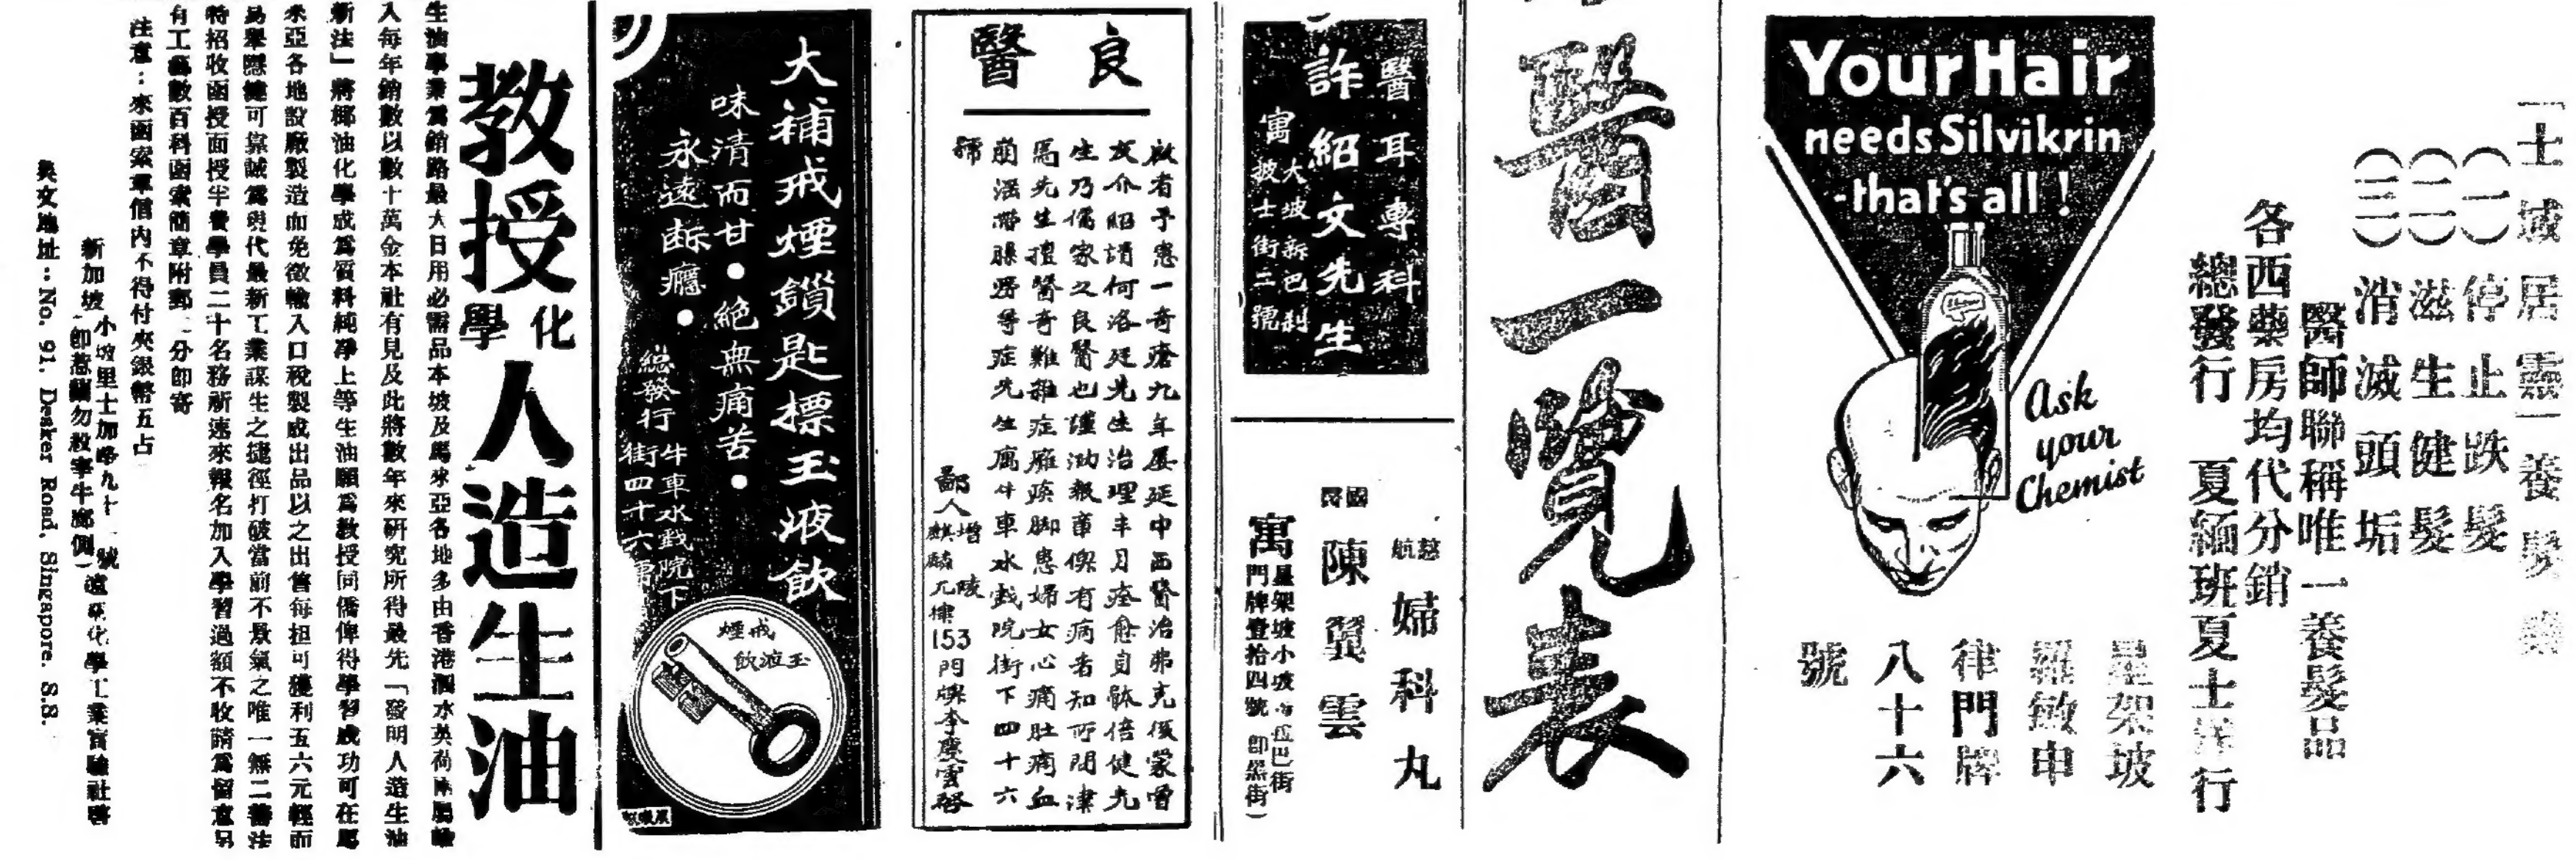 「士域居靈」養髮藥
(一)停止跌髮
(二)滋生健髮
(三)消滅頭垢
醫師聯稱唯一養髮品
各西藥房均代分銷
總發行 夏緬班夏士洋行
星架坡
羅敏申
律門牌
八十六
號
Your Hair
needs Silvikrin
-that's all!
Ask
your
Chemist
醫一覽表
醫耳專科
許紹文先生
寓大坡新巴刹
披士街二號
慈航 婦科丸
國醫 陳翼雲
寓星架坡小坡
門牌壹拾四號
良醫
啟者予患一奇瘡九年屢延中西醫治弗克復蒙曾
友介紹請何洛廷先生治理半月痊愈身體倍健先
生乃儒家之良醫也謹泐報章俾有病者知所問津
焉先生擅醫奇難雜症癱瘓脚患婦女心痛肚痛血
崩淫帶臊癆等症先生寓牛車水戲院街下四十六
號
鄙人增陵
麒麟兀律153門牌李慶雲啓
大補戒煙鎖匙標玉液飲
味清而甘●絕無痛苦●
永遠斷癮●
總發行牛車水戲院下
街四十六號
戒煙
玉液飲
教授化學人造生油
生油事業為銷路最大日用必需品本坡及馬來亞各地多由香港泗水英荷庫屬輸
入每年銷數以數十萬金本社有見及此將數年來研究所得最先「發明人造生油
新法」將椰油化學成為質料純凈上等生油願為教授同僑俾得學習成功可在馬
來亞各地設廠製造而免徵輸入口稅製成出品以之出售每担可獲利五六元輕而
易舉穩健可靠誠為現代最新工業謀生之捷徑打破當前不景氣之唯一無二善法
特招收函授面授半費學員二十名務祈速來報名加入學習過額不收請為留意另
有工藝數百科函索簡章附郵二分即寄
注意：來函索章信內不得付夾銀幣五占
新加坡小坡里士加略九十一號
遠東化學工業實驗社啓
英文地址：No. 91. Desker Road. Singapore. S.S.